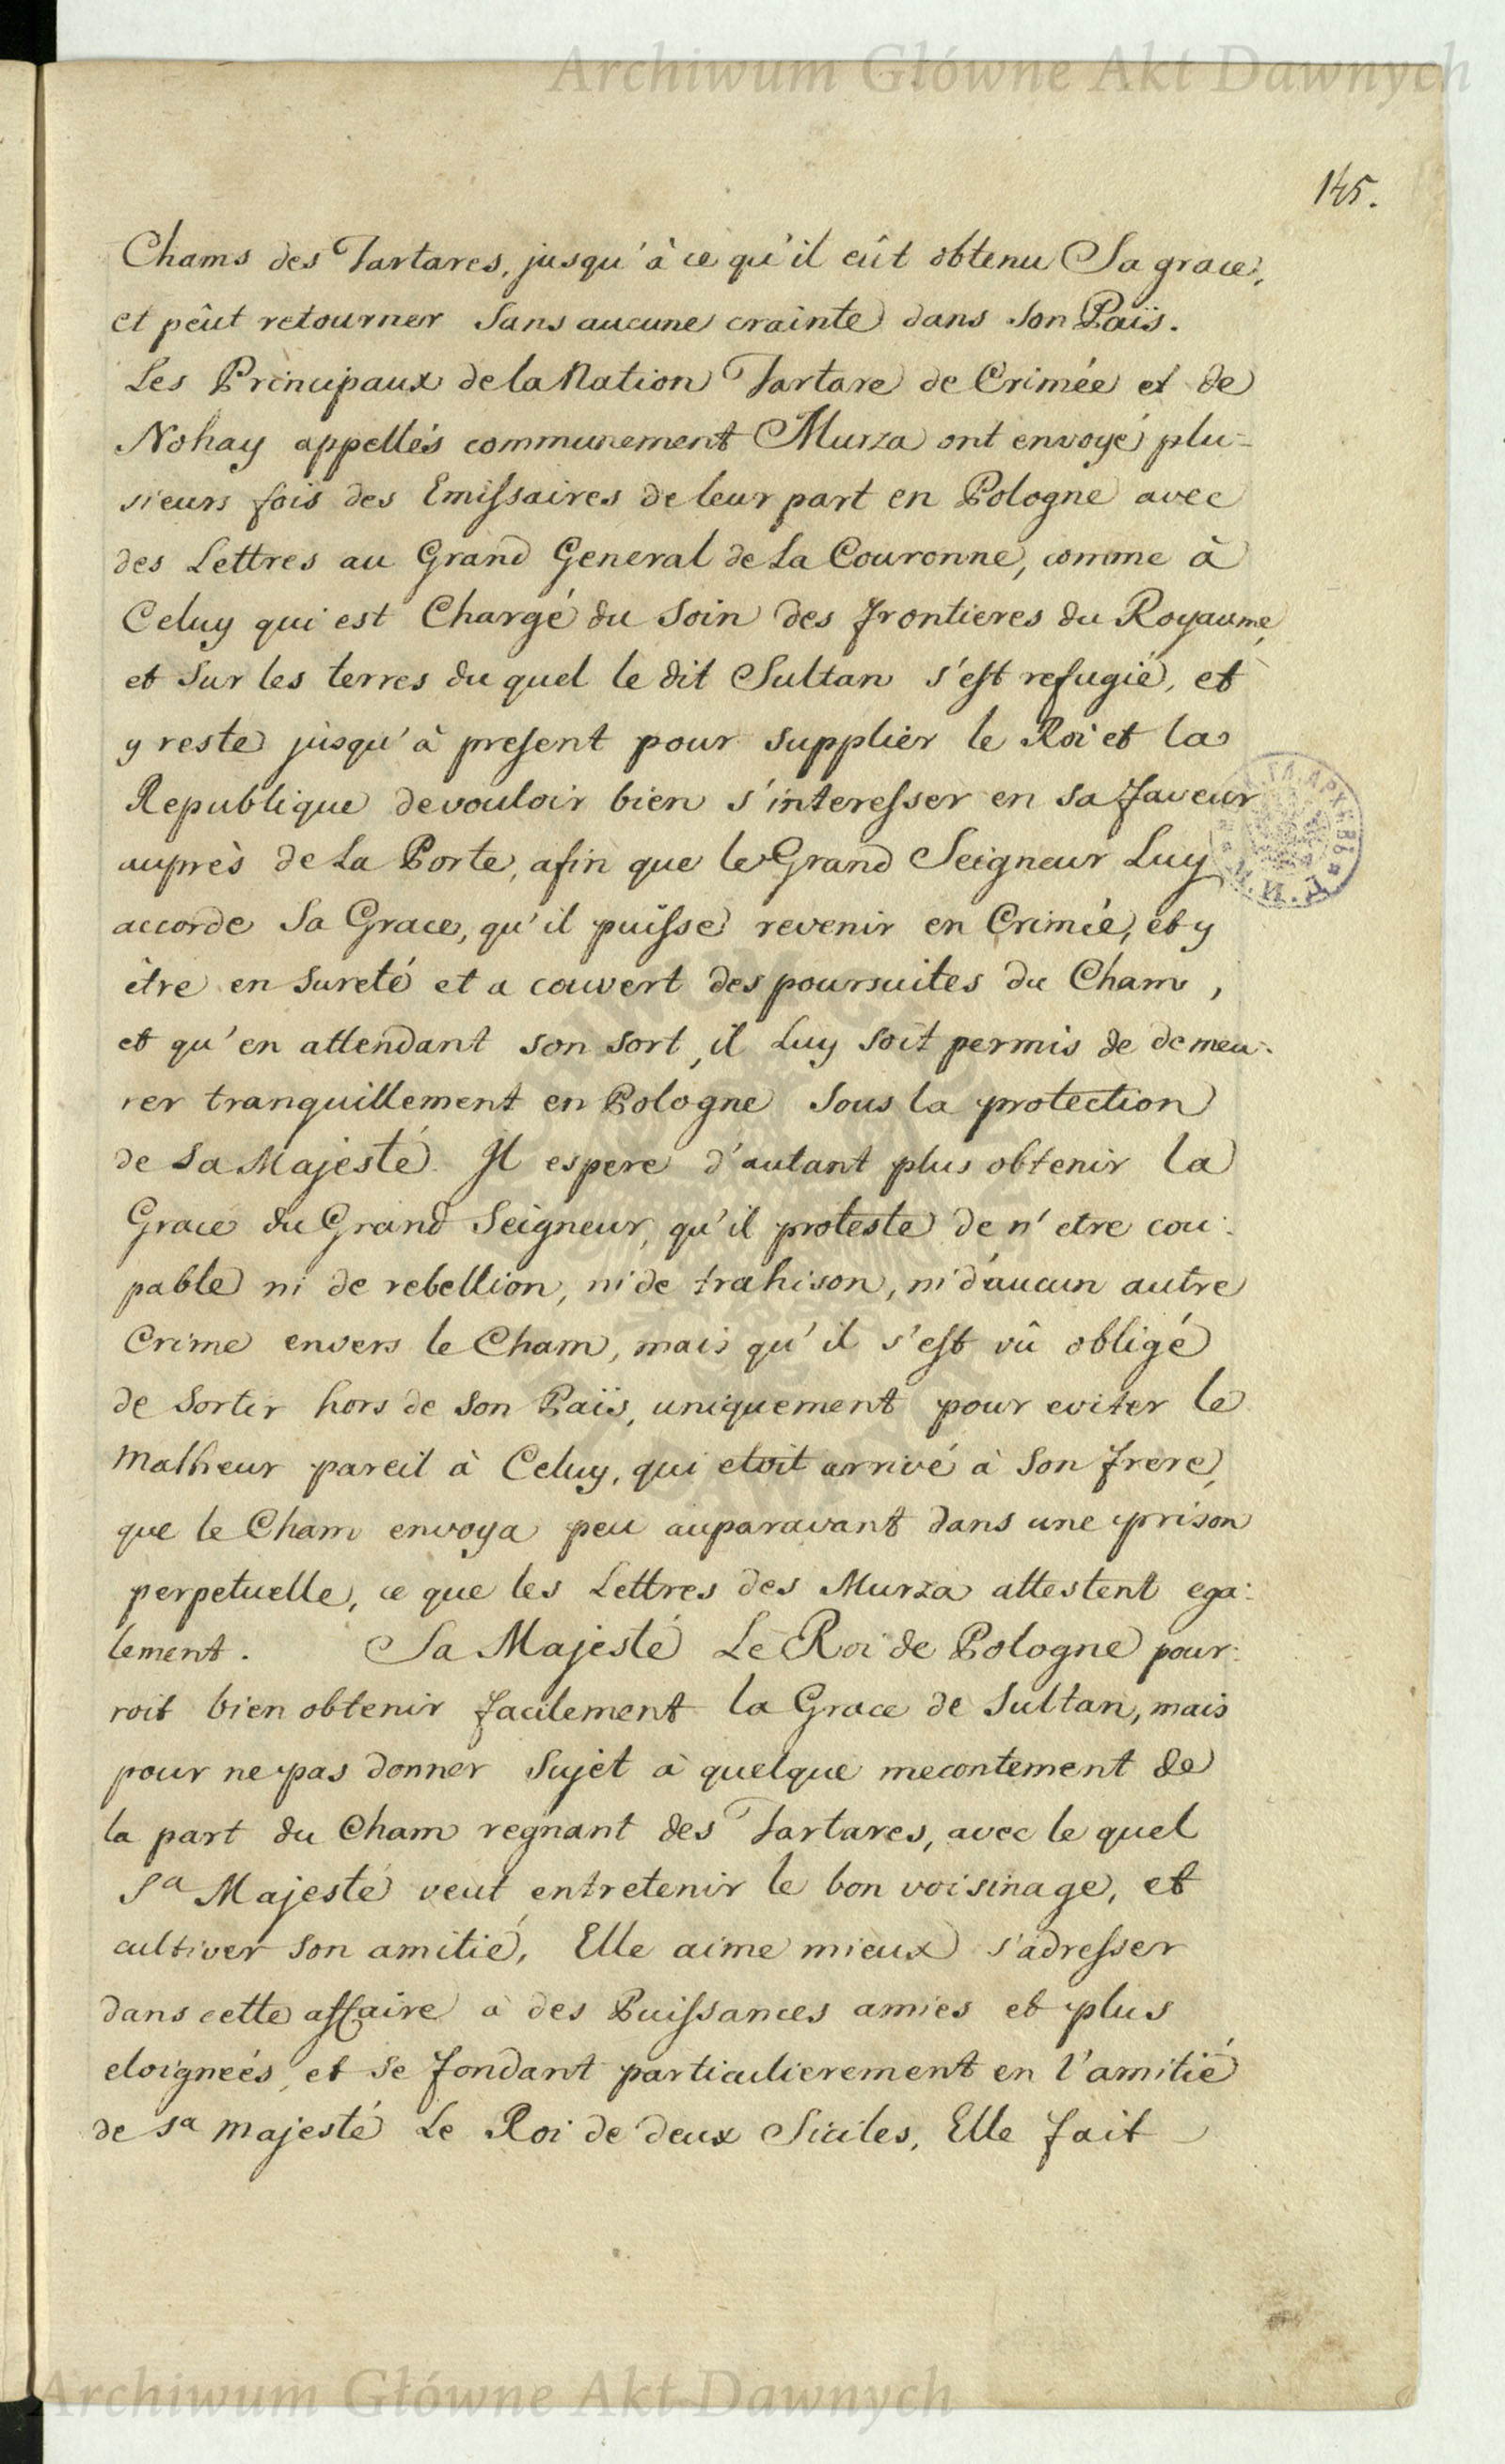 Archiwum Główne Akt Dawnych
145.
Chams des Tartares, jusqu'à ce qu'il eût obtenu Sa grace,
et pêut retourner Sans aucune crainte dans Son Païs.
Les Principaux de la Nation Tartare de Crimée et de
Nohay appellés communement Murza ont envoyé plu-
sieurs fois des Emissaires de leur part en Pologne avec
des Lettres au Grand General de La Couronne, comme à
Celuy qui est Chargé du Soin des frontieres du Royaume,
et Sur les terres du quel le dit Sultan s'est refugié, et
y reste jusqu'à present pour Supplier le Roi et la
Republique de vouloir bien s'interesser en Sa faveur
auprès de La Porte, afin que le Grand Seigneur Luy
accorde Sa Grace, qu'il puisse revenir en Crimée, et y
être en Sureté et a couvert des poursuites du Cham,
et qu'en attendant son sort, il Luy soit permis de demeu-
rer tranquillement en Pologne Sous la protection
de Sa Majesté. Il espere d'autant plus obtenir la
Grace du Grand Seigneur, qu'il proteste de n'etre cou-
pable ni de rebellion, ni de trahison, ni d'aucun autre
Crime envers le Cham, mais qu'il s'est vû obligé
de Sortir hors de Son Païs, uniquement pour eviter le
Malheur pareil à Celuy, qui etoit arrivé à Son frere,
que le Cham envoya peu auparavant dans une prison
perpetuelle, ce que les Lettres des Murza attestent ega-
lement. Sa Majesté Le Roi de Pologne pour-
roit bien obtenir facilement la Grace de Sultan, mais
pour ne pas donner Sujet à quelque mecontement de
la part du Cham regnant des Tartares, avec le quel
Sa Majesté veut entretenir le bon voisinage, et
cultiver Son amitié, Elle aime mieux s'adresser
dans cette affaire à des Puissances amies et plus
eloigneés, et Se fondant particulierement en l'amitié
de Sa Majesté Le Roi de deux Siciles, Elle fait
Archiwum Główne Akt Dawnych